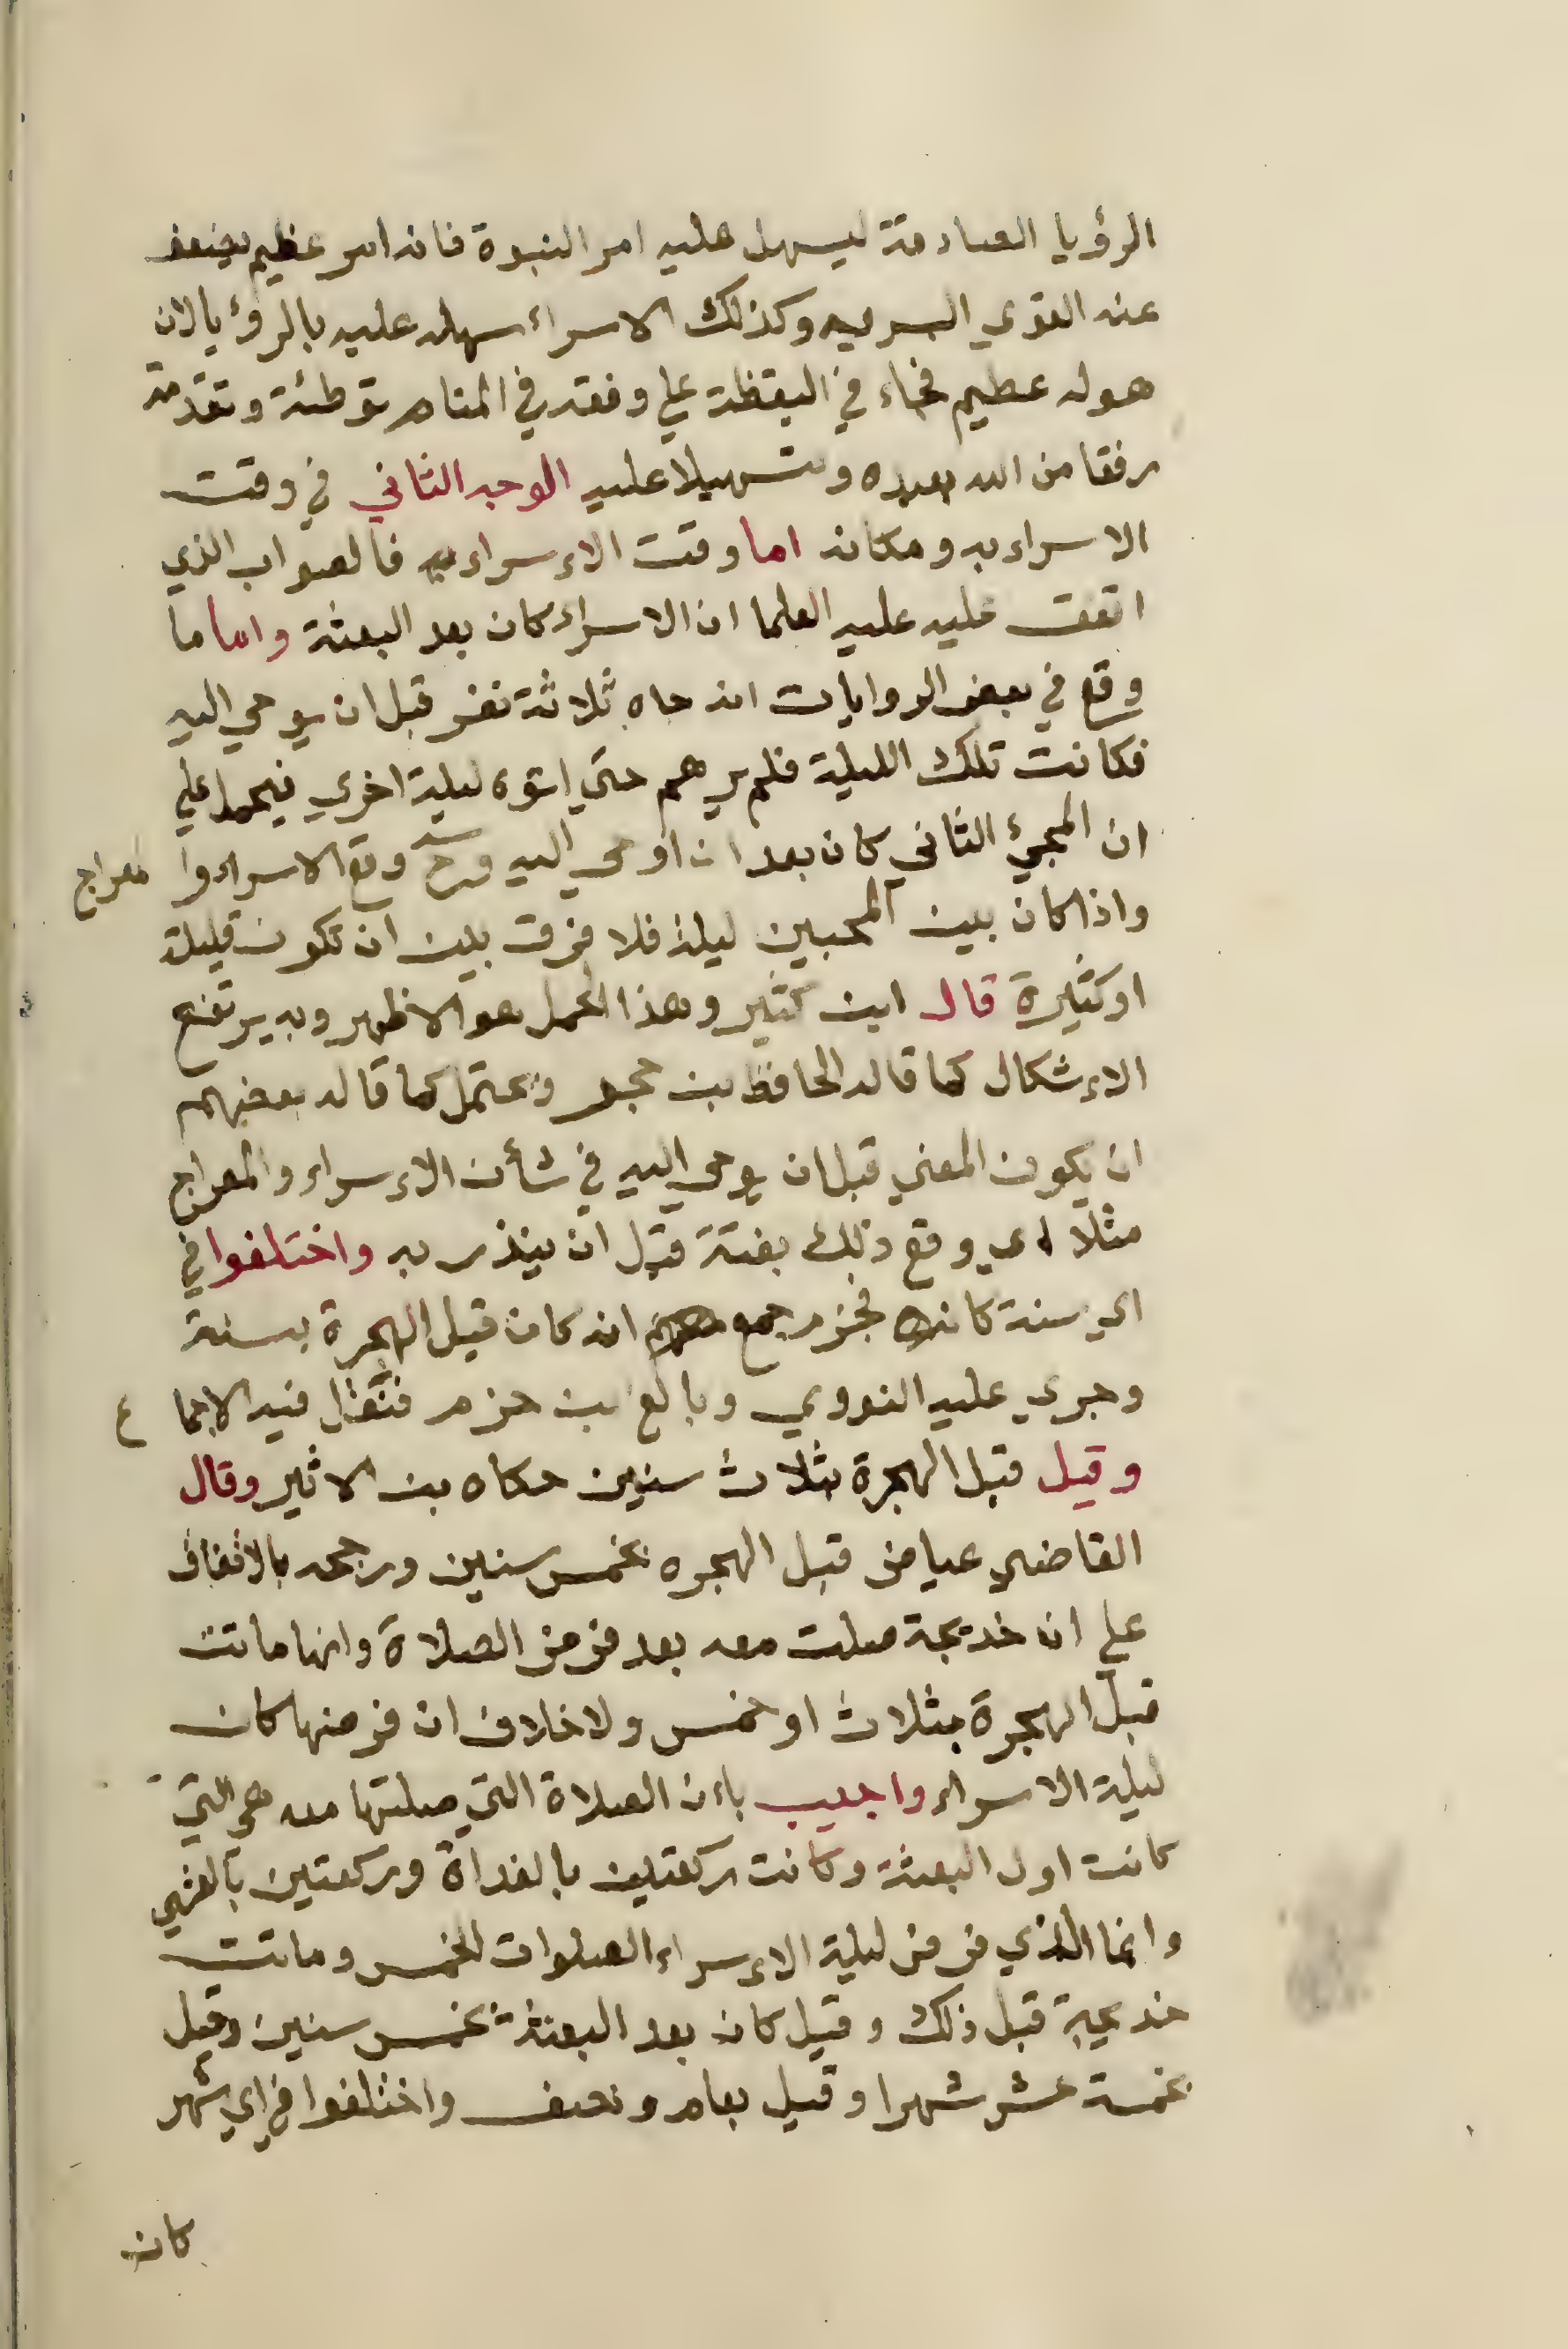 الرؤيا الصادقة ليسهل عليه امر النبوة فانه امر عظيم يضعف
عنه القوي البشريه وكذلك الاسراء سهله عليه بالرؤيا لان
هوله عظيم فجاء في اليقظة علي وفقه في المنام توطئة وتقدمة
رفقا من الله بعبده وتسهيلا عليه الوجه الثاني في وقت
الاسراء به ومكانه اما وقت الاءسراء به فالصواب الذي
اتفق عليه عليه العلما ان الاسراء كان بعد البعثة واما ما
وقع في بعض الروايات انه جاه ثلاثة نفر قبل ان يوحي اليه
فكانت تلك الليلة فلم يرهم حتي اتوه ليلة اخري فيحمل علي
ان المجئ الثاني كان بعد ان اوحي اليه وح وقع الاسراء والمعراج
واذا كان بين المجيين ليلة فلا فرق بين ان تكون قليلة
او كثيرة قال ابن كثير وهذا الحمل هو الاظهر وبه يرتفع
الاءشكال كما قاله الحافظ بن حجر ويحتمل كما قاله بعضهم
ان يكون المعني قبل ان يوحي اليه في شأن الاءسراء والمعراج
مثلا اي وقع ذلك بغتة قبل ان ينذر به واختلفوا في
اي سنة كان فجزم جمع انه كان قبل الهجرة بسنة
وجري عليه النووي وبالغ بن حزم فنقل فيه الاجماع
وقيل قبل الهجرة بثلاث سنين حكاه بن الاثير وقال
القاضي عياض قبل الهجره بخمس سنين ورجحه بالاتفاق
علي ان خديجة صلت معه بعد فرض الصلاة وانها ماتت
قبل الهجرة بثلاث او خمس ولا خلاف ان فرضها كان
ليلة الاسراء واجيب باءن الصلاة التي صلتها معه هي التي
كانت اول البعثة وكانت ركعتين بالغداة وركعتين بالعشي
وانما الذي فرض ليلة الاءسراء الصلوات الخمس وماتت
خديجة قبل ذلك وقيل كان بعد البعثة بخمس سنين وقيل
بخمسة عشر شهرا وقيل بعام ونصف واختلفوا في اي شهر
كان